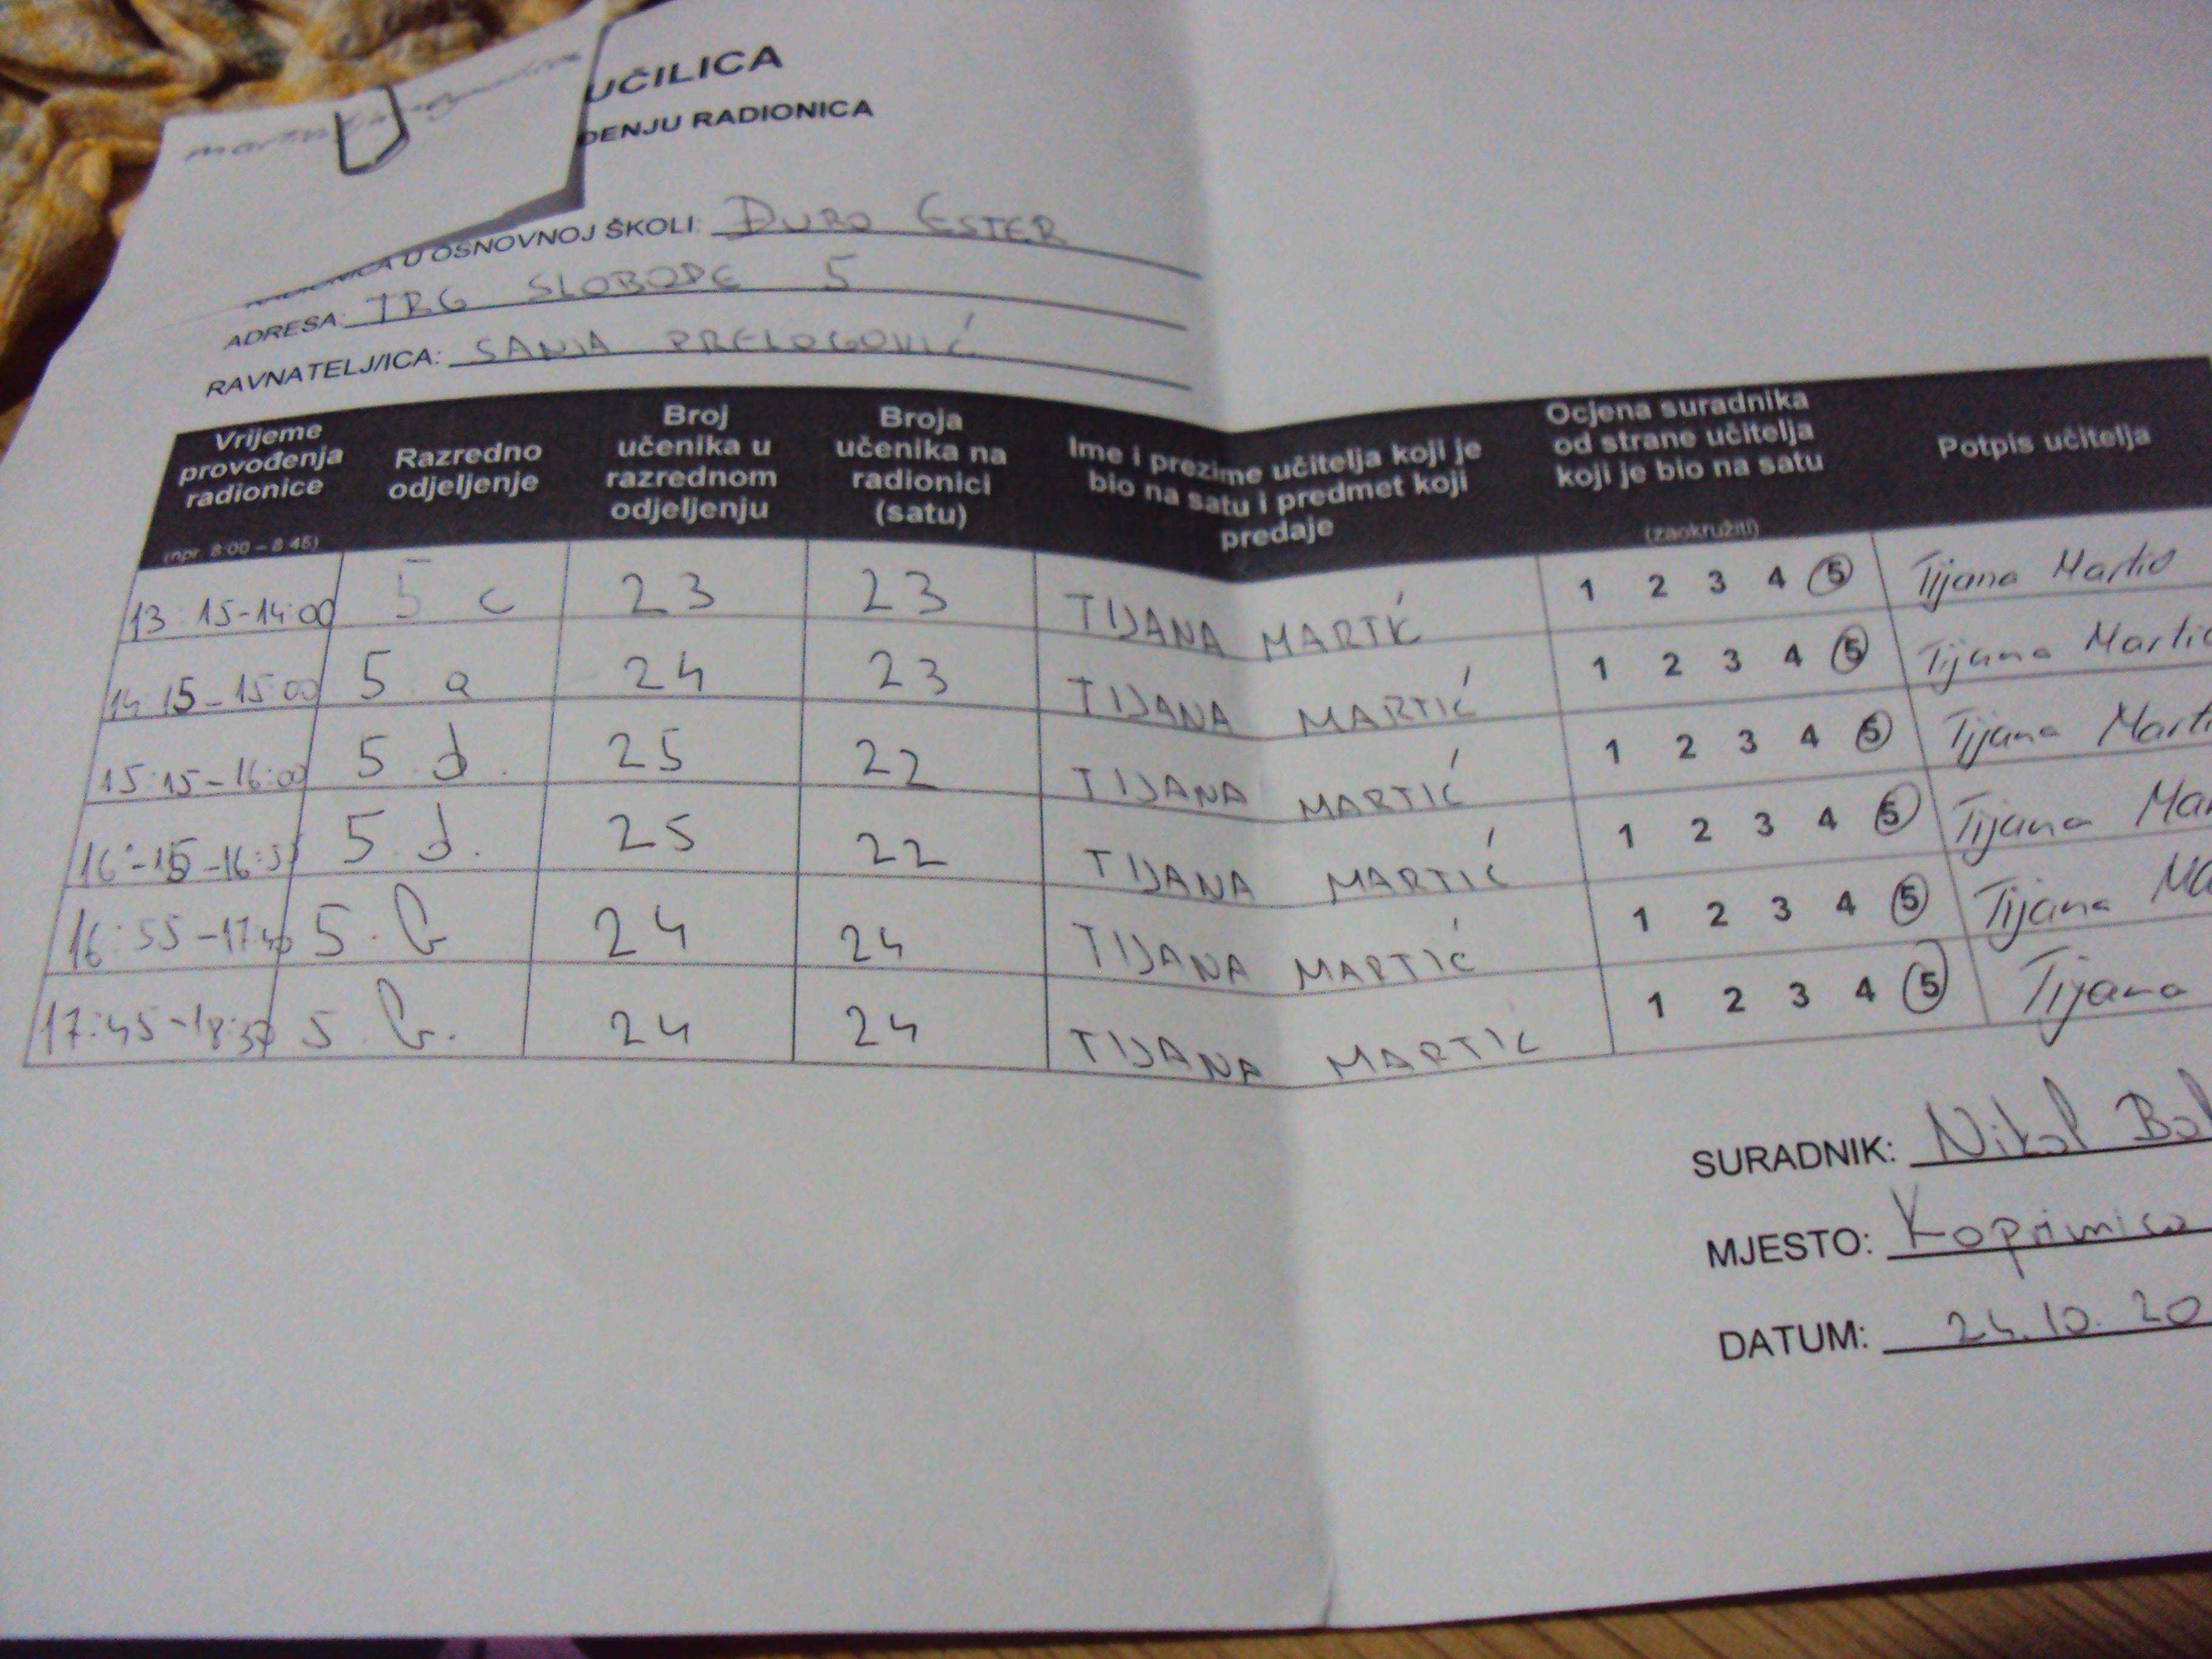 UČILICA
ĐENJU RADIONICA
U OSNOVNOJ ŠKOLI: ĐURO ESTER
ADRESA: TRG SLOBODE 5
RAVNATELJ/ICA: SANJA PRELOGOVIĆ
Vrijeme provođenja radionice (npr. 8:00 – 8:45) Razredno odjeljenje Broj učenika u razrednom odjeljenju Broja učenika na radionici (satu) Ime i prezime učitelja koji je bio na satu i predmet koji predaje Ocjena suradnika od strane učitelja koji je bio na satu (zaokružiti) Potpis učitelja
13:15-14:00 5 c 23 23 TIJANA MARTIĆ 1 2 3 4 5 Tijana Martić
14:15-15:00 5 a 24 23 TIJANA MARTIĆ 1 2 3 4 5 Tijana Martić
15:15-16:00 5.d. 25 22 TIJANA MARTIĆ 1 2 3 4 5 Tijana Marti
16:15-16:55 5.d. 25 22 TIJANA MARTIĆ 1 2 3 4 5 Tijana Mar
16:55-17:40 5.b 24 24 TIJANA MARTIĆ 1 2 3 4 5 Tijana Ma
17:45-18:30 5.b. 24 24 TIJANA MARTIĆ 1 2 3 4 5 Tijana
SURADNIK: Nikol Bol
MJESTO: Koprivnica
DATUM: 24.10.20